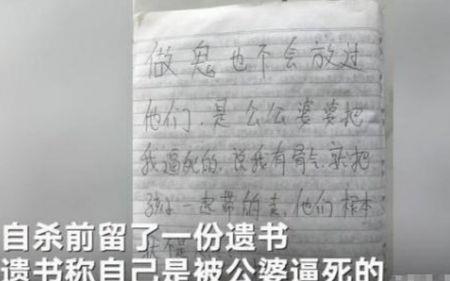 做鬼也不会放过
他们，是公公婆婆把
我逼死的，说我有骨气，就把
孩子一起带的走，他们根本
自杀前留了一份遗书
遗书称自己是被公婆逼死的